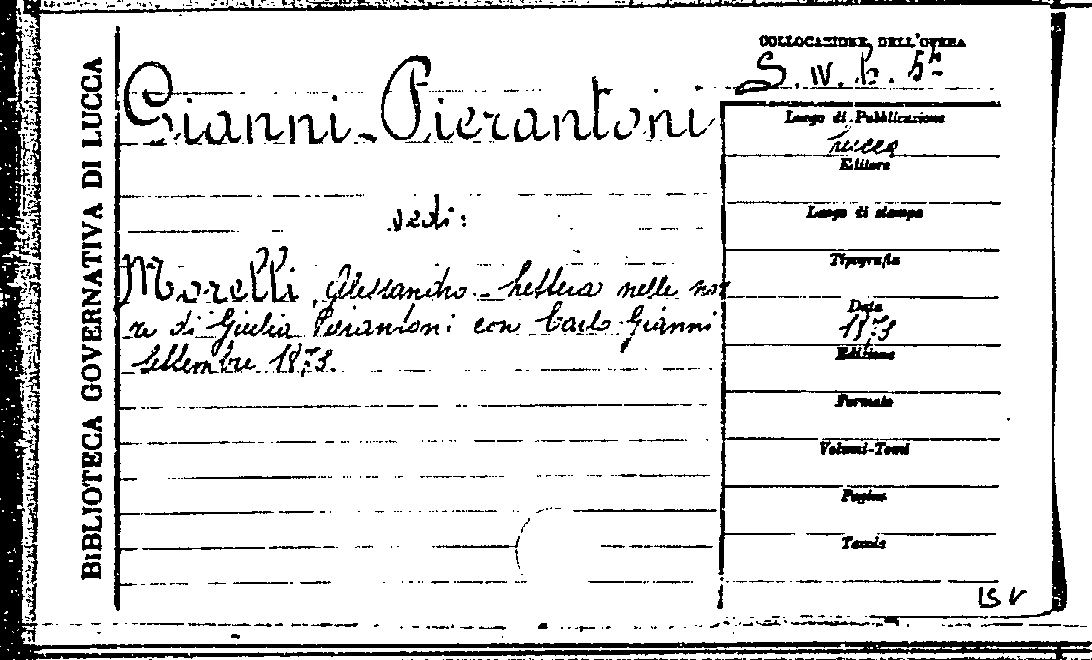 BIBLIOTECA GOVERNATIVA DI LUCCA
COLLOCAZIONE DELL'OPERA
Gianni-Pierantoni
vedi:
Morelli, Alessandro - Lettera nelle noz
ze di Giulia Pierantoni con Carlo Gianni
Settembre 1873.
Luogo di Pubblicazione
Lucca
Editore
Luogo di stampa
Tipografia
Data
1873
Edizione
Formato
Volumi-Tomi
Pagine